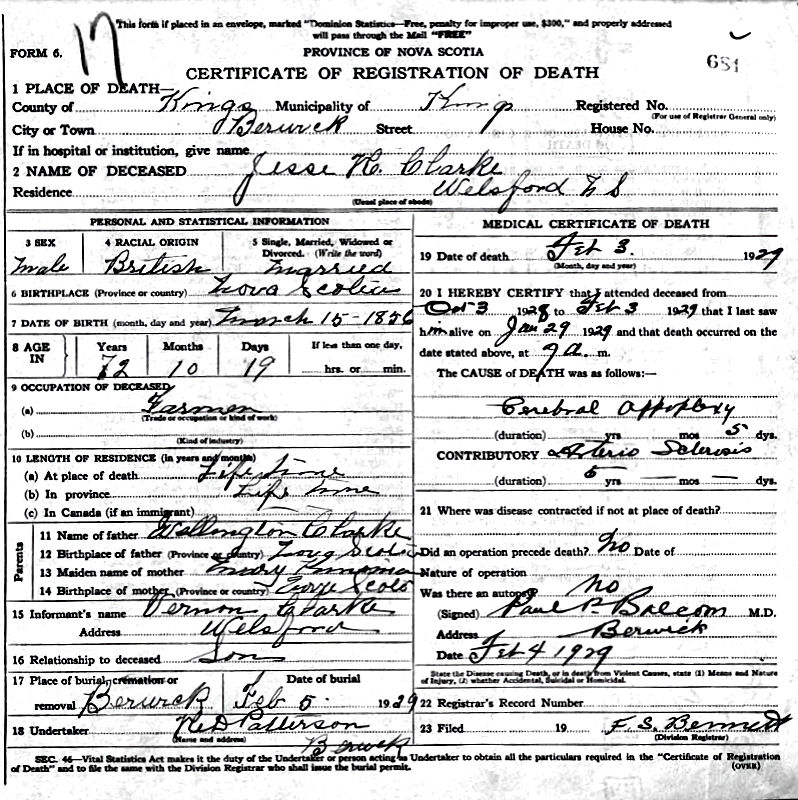 This form if placed in an envelope, marked "Dominion Statistics—Free, penalty for improper use, $300," and properly addressed
will pass through the Mail "FREE"
17
FORM 6.
PROVINCE OF NOVA SCOTIA
681
CERTIFICATE OF REGISTRATION OF DEATH
1 PLACE OF DEATH—
County of Kings Municipality of Kings Registered No.
(For use of Registrar General only)
City or Town Berwick Street House No.
If in hospital or institution, give name
2 NAME OF DECEASED Jesse H. Clarke
Residence Welsford N S
(Usual place of abode)
PERSONAL AND STATISTICAL INFORMATION
3 SEX 4 RACIAL ORIGIN 5 Single, Married, Widowed or
Divorced. (Write the word)
Male British Married
6 BIRTHPLACE (Province or country) Nova Scotia
7 DATE OF BIRTH (month, day and year) March 15 - 1856
8 AGE IN Years Months Days If less than one day,
72 10 19 hrs. or min.
9 OCCUPATION OF DECEASED
(a) Farmer
(Trade or occupation or kind of work)
(b)
(Kind of industry)
10 LENGTH OF RESIDENCE (in years and months)
(a) At place of death Life time
(b) In province Life time
(c) In Canada (if an immigrant)
Parents
11 Name of father Wellington Clarke
12 Birthplace of father (Province or country) Nova Scotia
13 Maiden name of mother
14 Birthplace of mother (Province or country) Nova Scotia
15 Informant's name Vernon Clarke
Address Welsford
16 Relationship to deceased Son
17 Place of burial, cremation or Date of burial
removal Berwick Feb 5 1929
18 Undertaker Patterson
(Name and address)
Berwick
MEDICAL CERTIFICATE OF DEATH
19 Date of death Feb 3. 1929
(Month, day and year)
20 I HEREBY CERTIFY that I attended deceased from
Oct 3 1928 to Feb 3 1929 that I last saw
him alive on Jan 29 1929 and that death occurred on the
date stated above, at 7 a. m.
The CAUSE of DEATH was as follows:—
Cerebral Appoplexy
(duration) yrs mos 5 dys.
CONTRIBUTORY Arterio Sclerosis
(duration) 5 yrs — mos — dys.
21 Where was disease contracted if not at place of death?
Did an operation precede death? No Date of
Nature of operation
Was there an autopsy No
(Signed) Paul P. Balcom M.D.
Address Berwick
Date Feb 4 1929
State the Disease causing Death, or in death from Violent Causes, state (1) Means and Nature
of Injury, (2) whether Accidental, Suicidal or Homicidal.
22 Registrar's Record Number
23 Filed 19 F. S. Bennett
(Division Registrar)
SEC. 46—Vital Statistics Act makes it the duty of the Undertaker or person acting as Undertaker to obtain all the particulars required in the "Certificate of Registration
of Death" and to file the same with the Division Registrar who shall issue the burial permit.
(OVER)